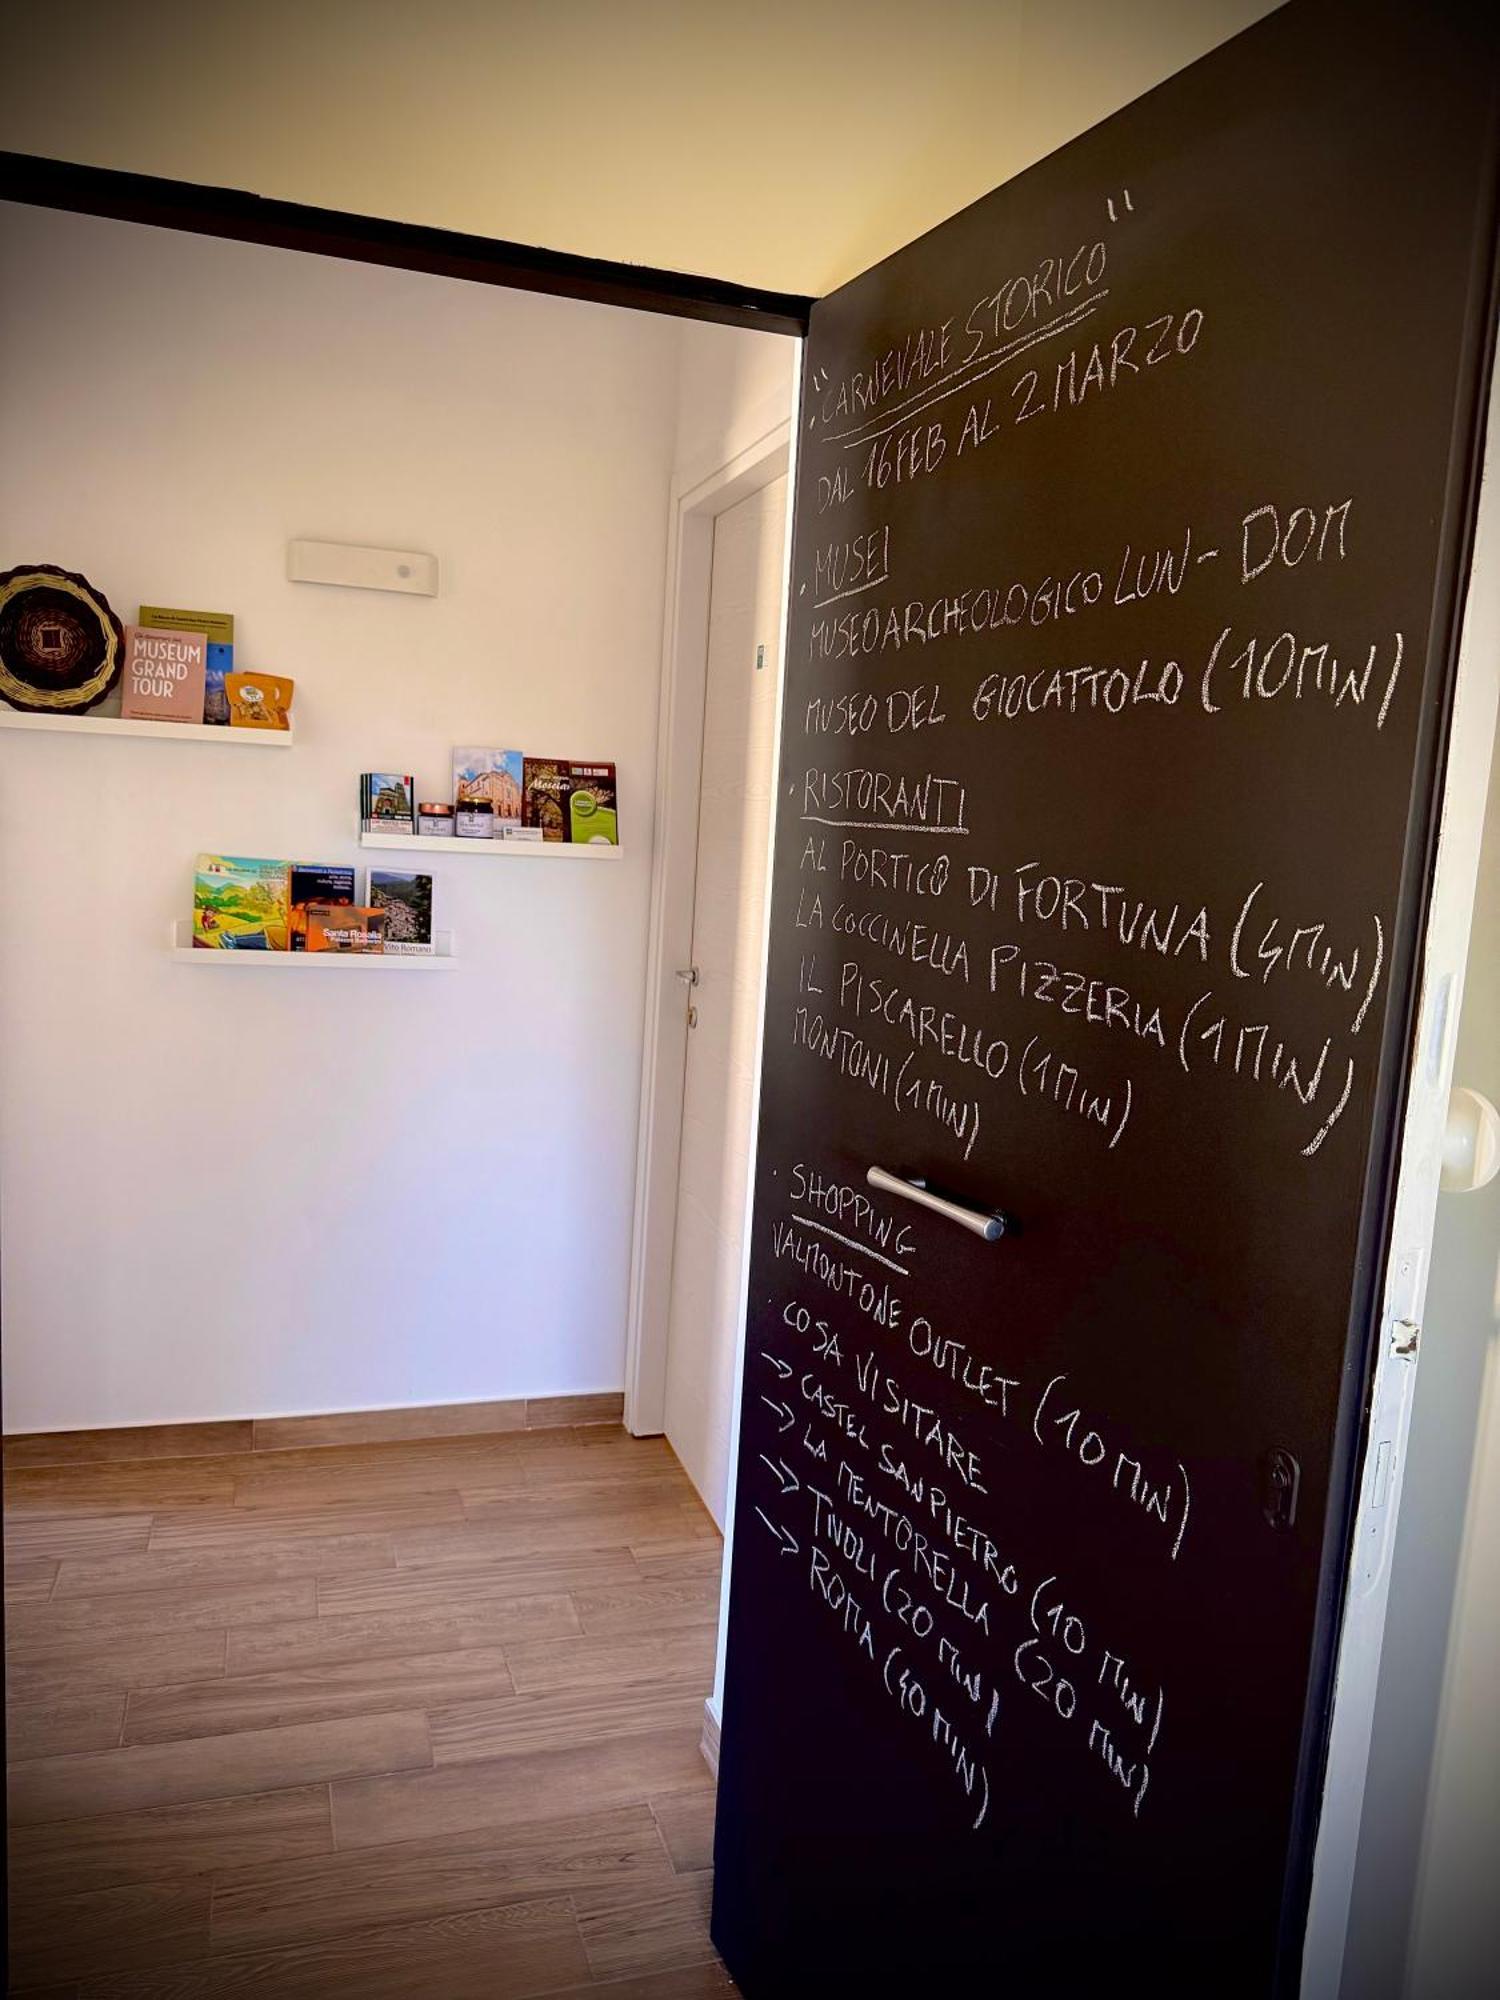 MUSEUM
GRAND
TOUR
Santa Rosalia
Vito Romano
"CARNEVALE STORICO"
DAL 16 FEB AL 2 MARZO
. MUSEI
MUSEO ARCHEOLOGICO LUN - DOM
MUSEO DEL GIOCATTOLO (10 MIN)
. RISTORANTI
AL PORTICO DI FORTUNA (4 MIN)
LA COCCINELLA PIZZERIA (1 MIN)
IL PISCARELLO (1 MIN)
MONTONI (1 MIN)
. SHOPPING
VALMONTONE OUTLET (10 MIN)
. COSA VISITARE
→ CASTEL SAN PIETRO (10 MIN)
→ LA MENTORELLA (20 MIN)
→ TIVOLI (20 MIN)
→ ROMA (40 MIN)